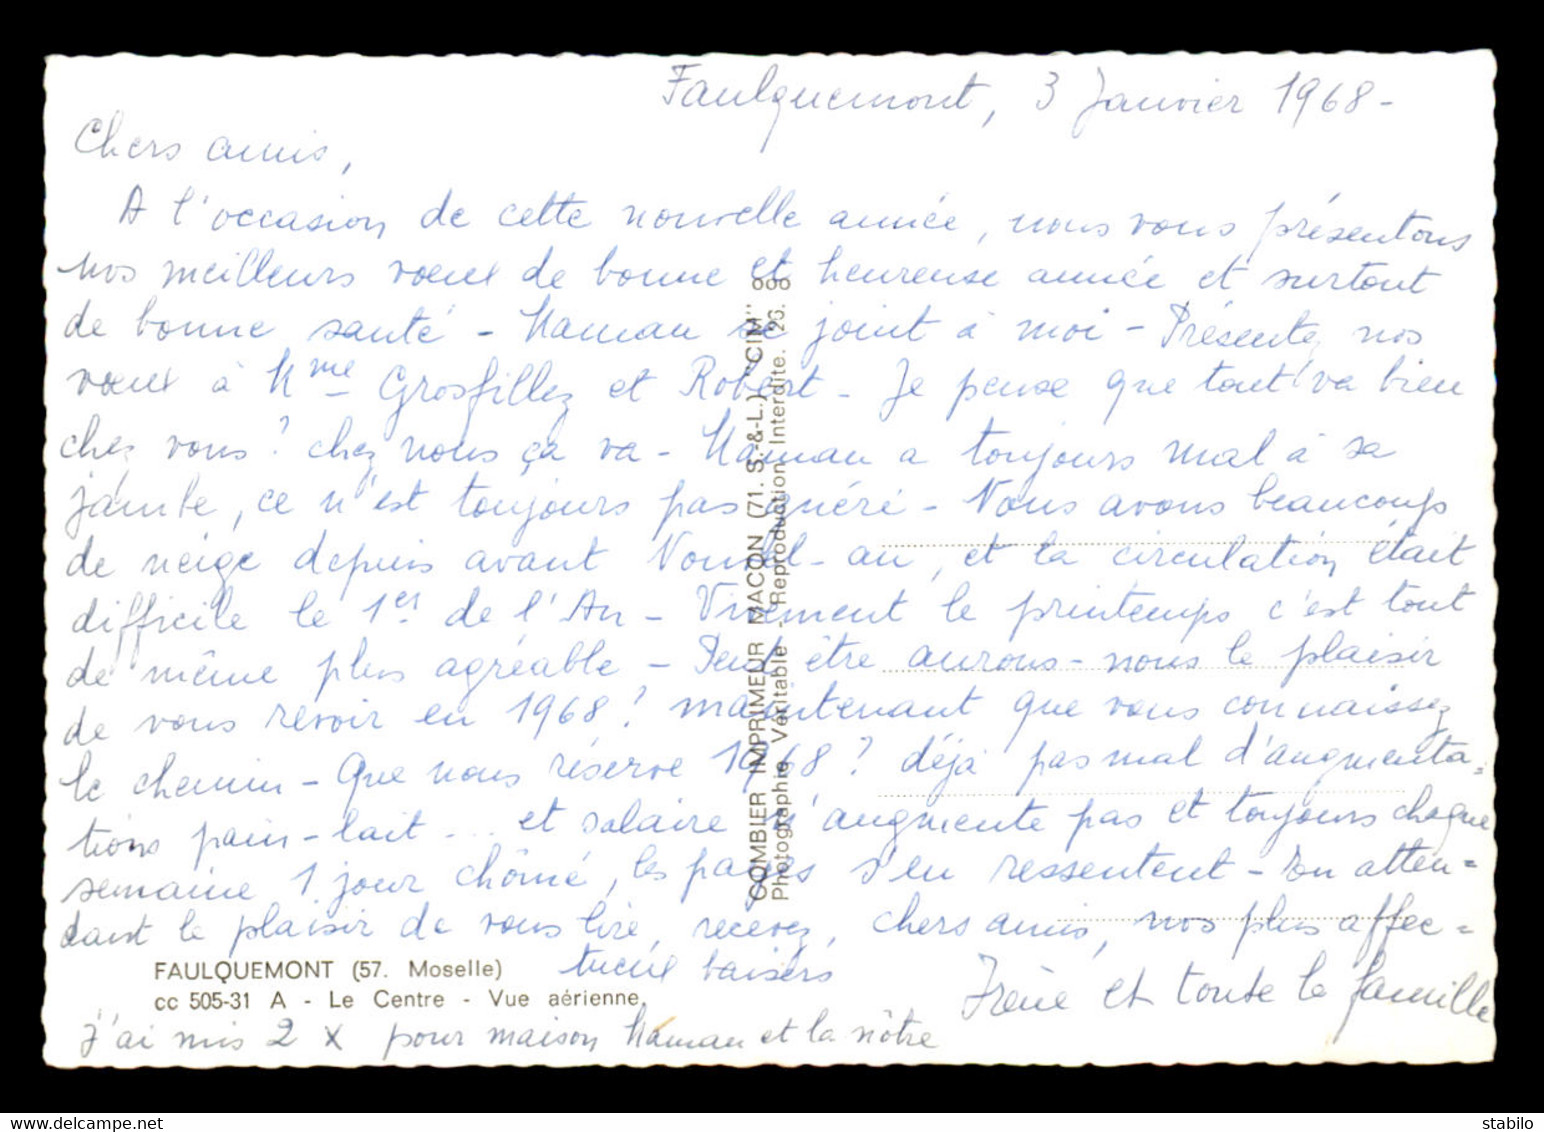 Faulquemont, 3 Janvier 1968-
Chers amis,
A l'occasion de cette nouvelle année, nous vous présentons
nos meilleurs vœux de bonne et heureuse année et surtout
de bonne santé - Maman se joint à moi - Présentez nos
vœux à Mme Grosfillez et Robert - Je pense que tout va bien
chez vous? chez nous ça va - Maman a toujours mal à sa
jambe, ce n'est toujours pas guéri - Nous avons beaucoup
de neige depuis avant Nouvel-an, et la circulation était
difficile le 1er de l'An - Vivement le printemps c'est tout
de même plus agréable - Peut être aurons-nous le plaisir
de vous revoir en 1968? maintenant que vous connaissez
le chemin - Que nous réserve 1968? déjà pas mal d'augmenta=
tions pain-lait... et salaire n'augmente pas et toujours chaque
semaine 1 jour chômé, les payes s'en ressentent - En atten=
dant le plaisir de vous lire, recevez, chers amis, nos plus affec=
tueux baisers
Irène et toute la famille
J'ai mis 2 x pour maison Maman et la nôtre
FAULQUEMONT (57. Moselle)
cc 505-31 A - Le Centre - Vue aérienne.
COMBIER IMPRIMEUR MACON (71. S.-&-L.) "CIM"
Photographie Véritable - Reproduction Interdite. 26.
www.delcampe.net
stabilo